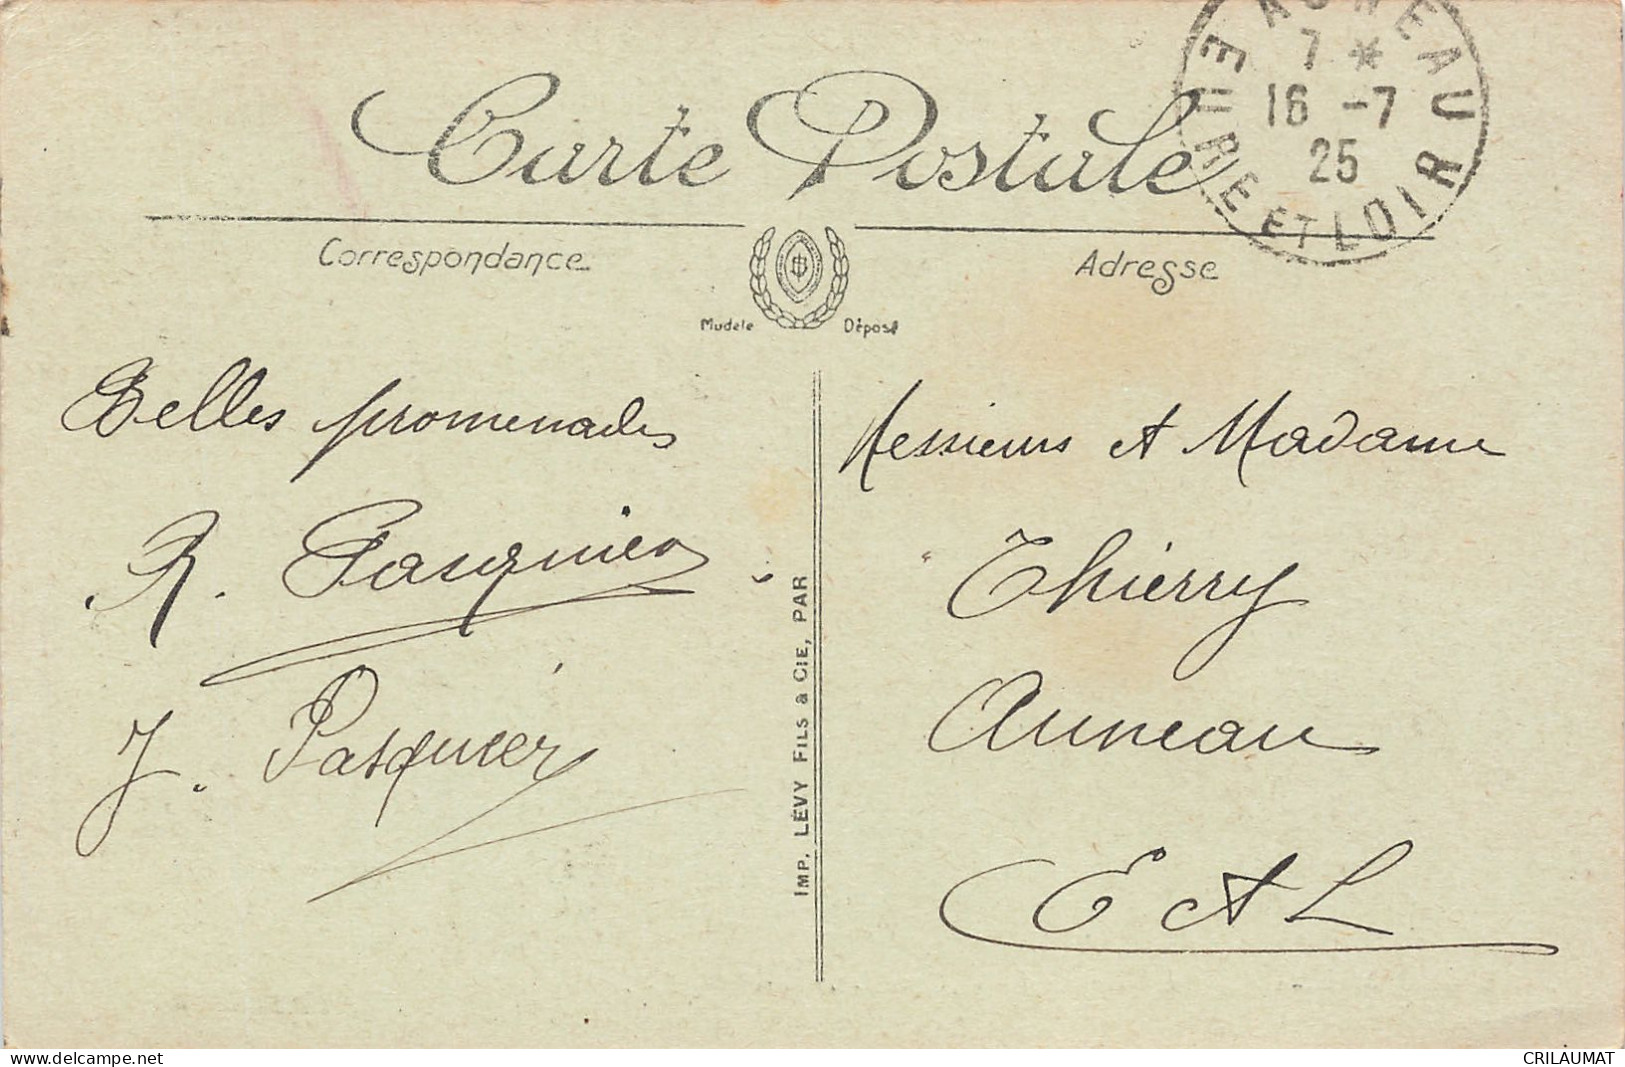 Carte Postale
AUNEAU
7 *
16 -7
25
EURE ET LOIR
Correspondance
Adresse
Modèle Déposé
Belles promenades
R. Pasquier
J. Pasquier
IMP. LÉVY FILS & CIE, PAR
Messieurs et Madame
Thierry
Auneau
E et L
www.delcampe.net
CRILAUMAT